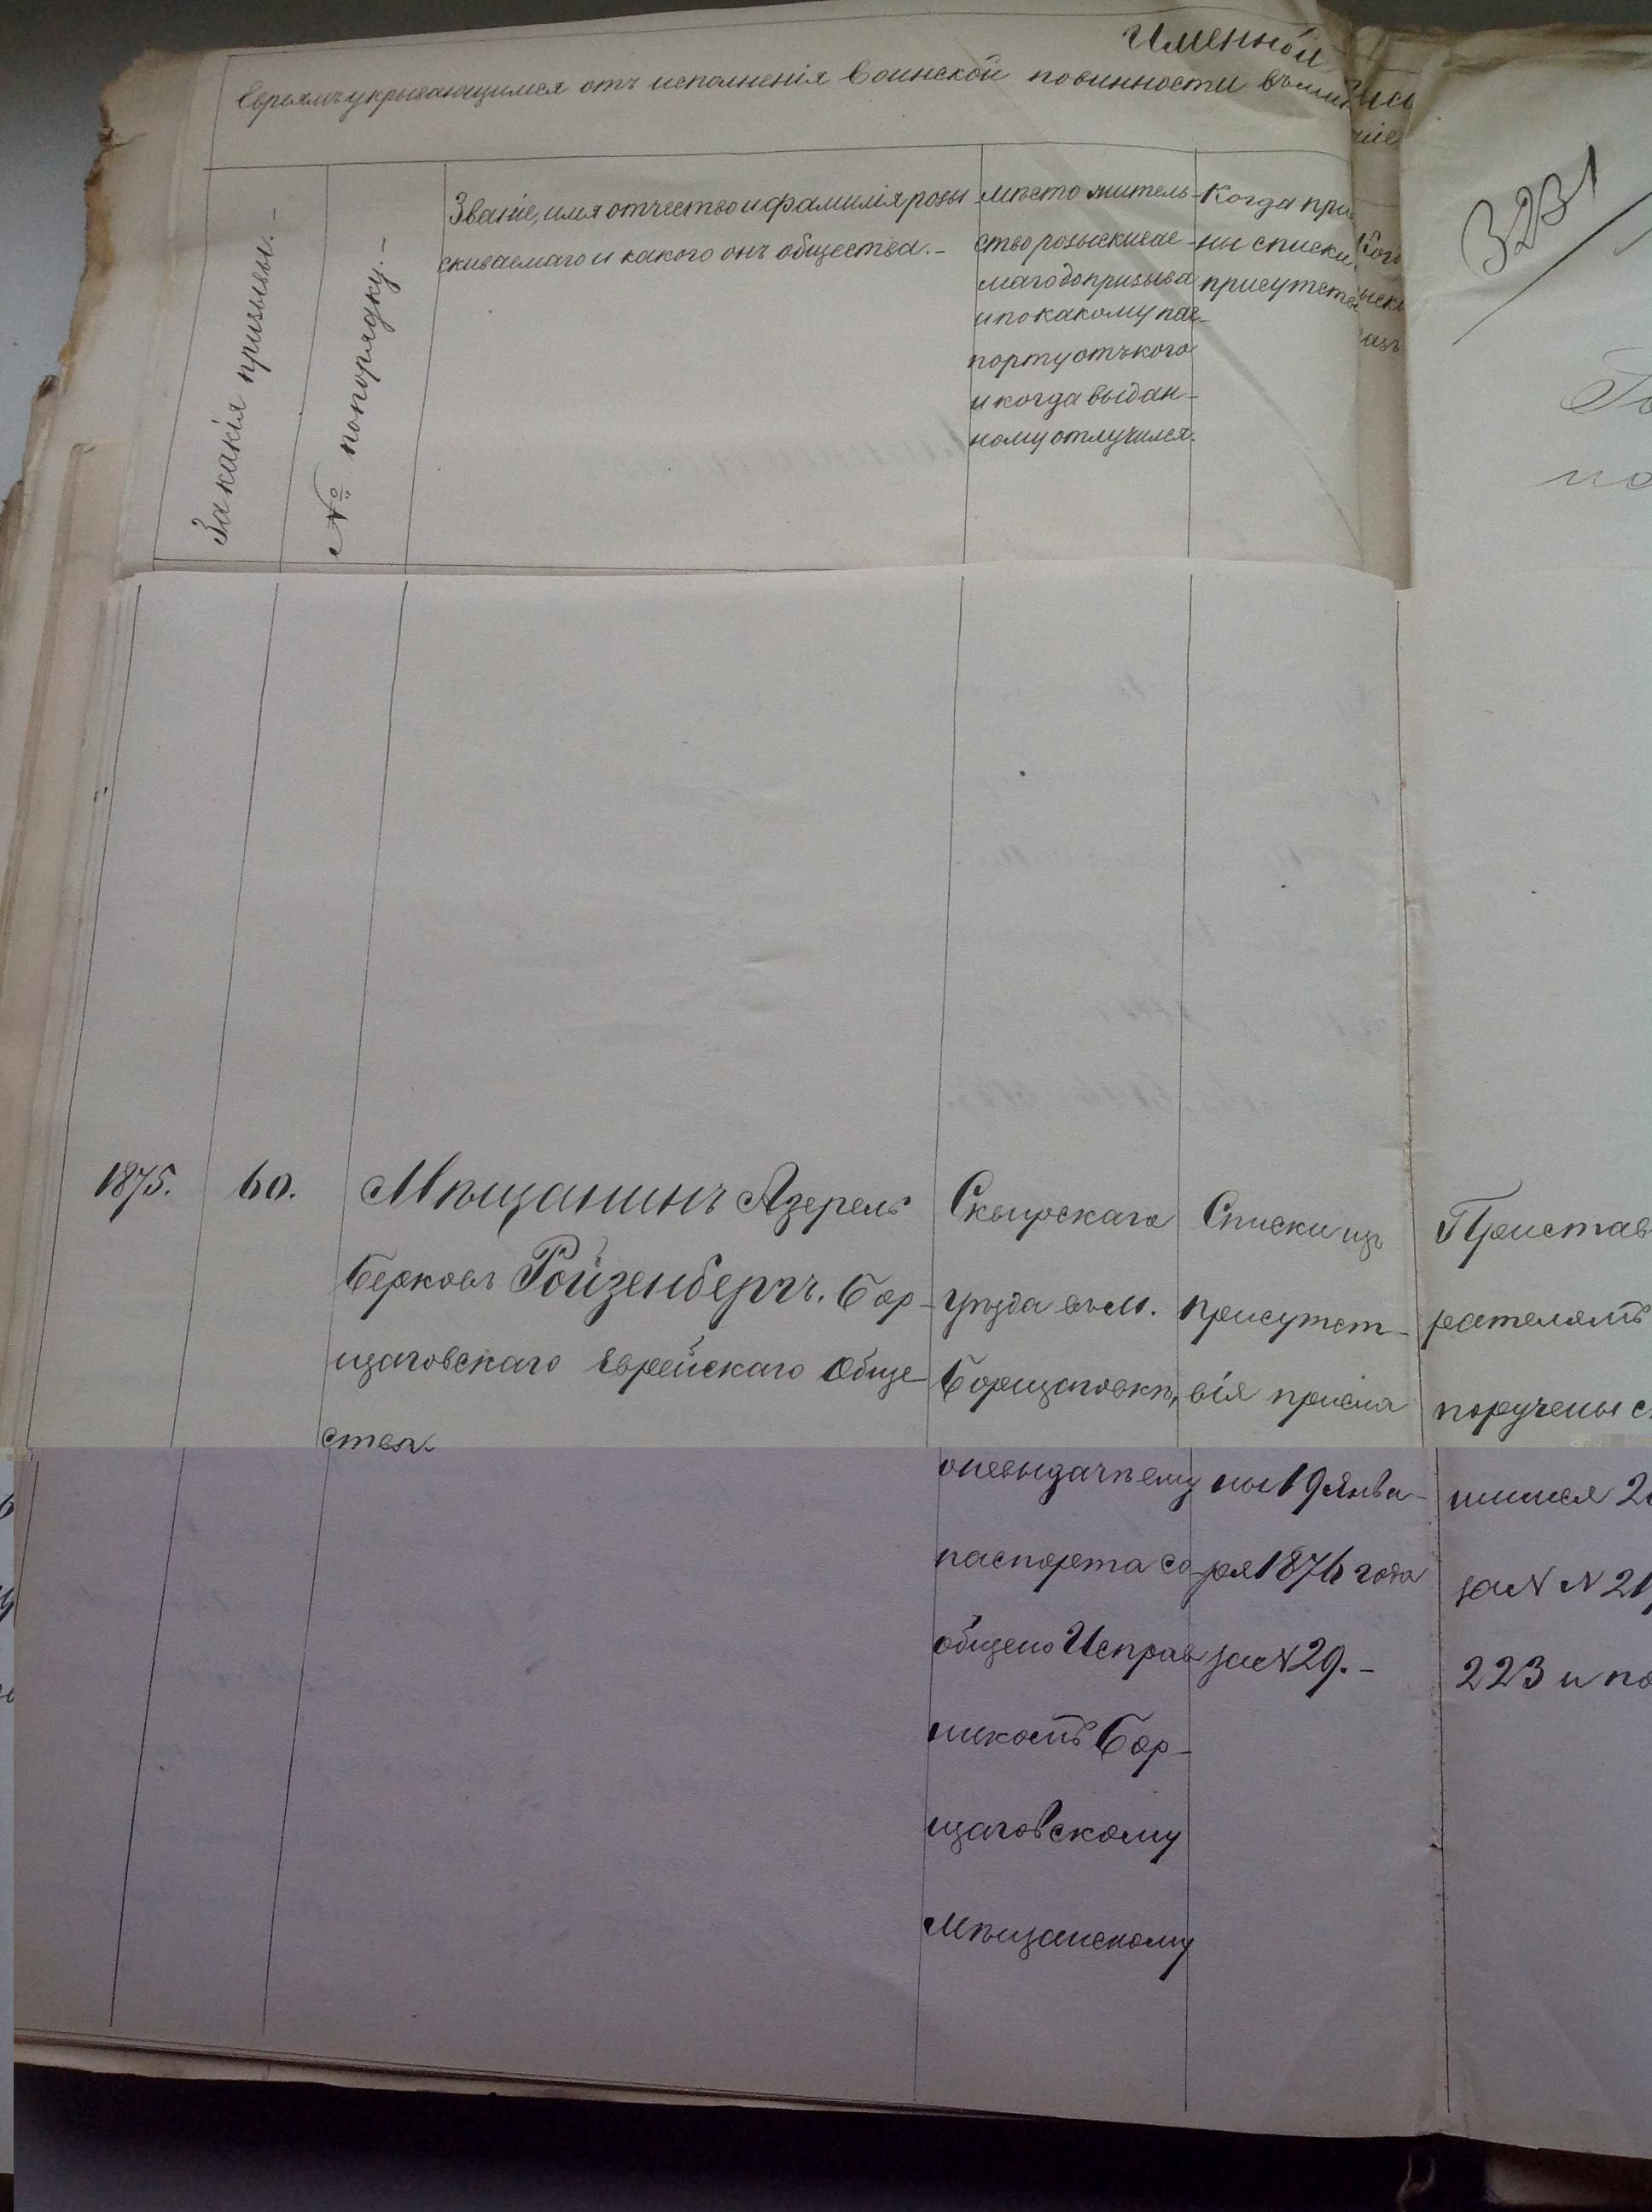 Именной
Евреямъ укрывающимся отъ исполненія Воинской повинности
3231
За какія призывы.-
№ попорядку.-
Званіе, имя отчество и фамилія розы
скиваемаго и какого онъ общества.-
мѣсто житель-
ство розыскивае-
маго до призыва
и по какому пас-
порту отъ кого
и когда выдан-
ному отлучился.
Когда при
ны списки
присутств
1875.
60.
Мѣщанинъ Азерель
Берковъ Ройзенбергъ. Бор-
щаговскаго Еврейскаго Обще-
ства.
Сквирскаго
уѣзда въ м.
Борщаговкѣ,
о невыдачѣ ему
паспорта со-
общено Исправ
никомъ Бор-
щаговскому
Мѣщанскому
Списки изъ
присутст-
вія присла
ны 19 Янва-
ря 1876 года
за N 29.-
Пристав
рателямъ
поручены с
шимся 2
за N N 21
223 и по